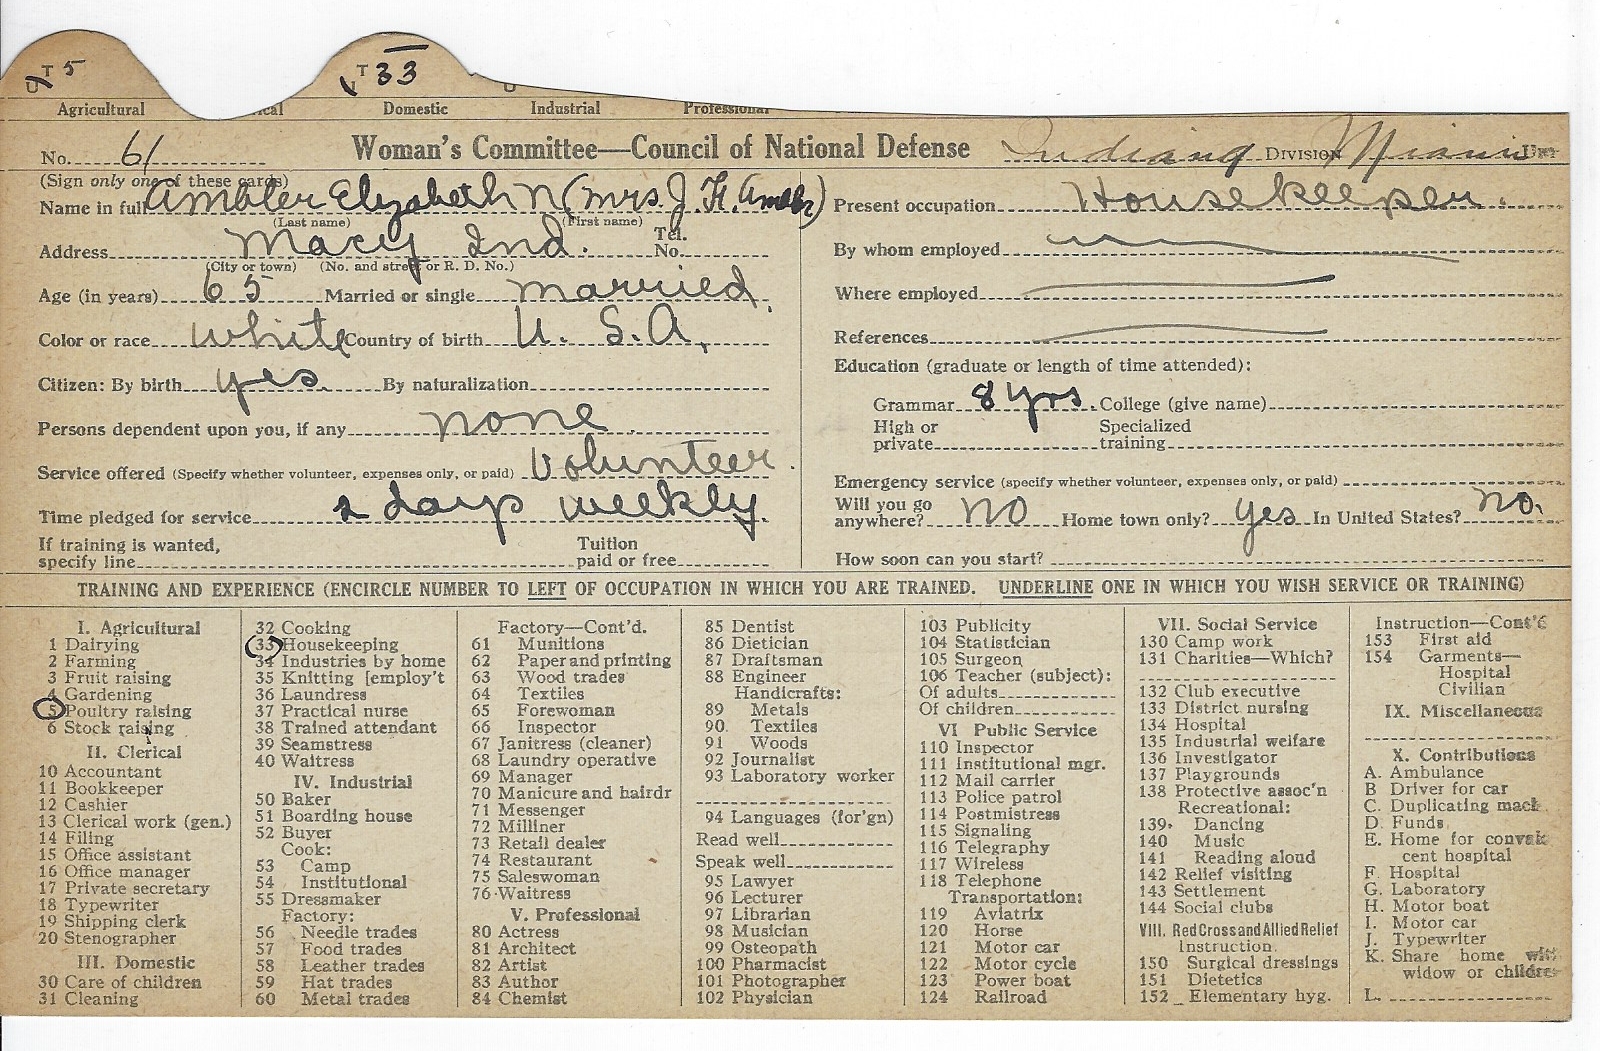 T 5
T 33
Agricultural ical Domestic Industrial Professional
No. 61 Woman's Committee—Council of National Defense Indiana DIVISION Miami
(Sign only one of these cards)
Name in full Ambler Elizabeth N (Mrs. J. H. Ambler)
(Last name) (First name)
Address Macy Ind. Tel. No.
(City or town) (No. and street or R. D. No.)
Age (in years) 65 Married or single married.
Color or race white Country of birth U. S. A.
Citizen: By birth yes By naturalization
Persons dependent upon you, if any none.
Service offered (Specify whether volunteer, expenses only, or paid) Volunteer.
Time pledged for service 2 days weekly.
If training is wanted, specify line Tuition paid or free
Present occupation Housekeeper.
By whom employed
Where employed
References
Education (graduate or length of time attended):
Grammar 8 yrs College (give name)
High or private Specialized training
Emergency service (specify whether volunteer, expenses only, or paid)
Will you go anywhere? NO Home town only? yes In United States? No.
How soon can you start?
TRAINING AND EXPERIENCE (ENCIRCLE NUMBER TO LEFT OF OCCUPATION IN WHICH YOU ARE TRAINED. UNDERLINE ONE IN WHICH YOU WISH SERVICE OR TRAINING)
I. Agricultural
1 Dairying
2 Farming
3 Fruit raising
4 Gardening
5 Poultry raising
6 Stock raising
II. Clerical
10 Accountant
11 Bookkeeper
12 Cashier
13 Clerical work (gen.)
14 Filing
15 Office assistant
16 Office manager
17 Private secretary
18 Typewriter
19 Shipping clerk
20 Stenographer
III. Domestic
30 Care of children
31 Cleaning
32 Cooking
33 Housekeeping
34 Industries by home
35 Knitting [employ't
36 Laundress
37 Practical nurse
38 Trained attendant
39 Seamstress
40 Waitress
IV. Industrial
50 Baker
51 Boarding house
52 Buyer
Cook:
53 Camp
54 Institutional
55 Dressmaker
Factory:
56 Needle trades
57 Food trades
58 Leather trades
59 Hat trades
60 Metal trades
Factory—Cont'd.
61 Munitions
62 Paper and printing
63 Wood trades
64 Textiles
65 Forewoman
66 Inspector
67 Janitress (cleaner)
68 Laundry operative
69 Manager
70 Manicure and hairdr
71 Messenger
72 Milliner
73 Retail dealer
74 Restaurant
75 Saleswoman
76 Waitress
V. Professional
80 Actress
81 Architect
82 Artist
83 Author
84 Chemist
85 Dentist
86 Dietician
87 Draftsman
88 Engineer
Handicrafts:
89 Metals
90. Textiles
91 Woods
92 Journalist
93 Laboratory worker
94 Languages (for'gn)
Read well
Speak well
95 Lawyer
96 Lecturer
97 Librarian
98 Musician
99 Osteopath
100 Pharmacist
101 Photographer
102 Physician
103 Publicity
104 Statistician
105 Surgeon
106 Teacher (subject):
Of adults
Of children
VI Public Service
110 Inspector
111 Institutional mgr.
112 Mail carrier
113 Police patrol
114 Postmistress
115 Signaling
116 Telegraphy
117 Wireless
118 Telephone
Transportation:
119 Aviatrix
120 Horse
121 Motor car
122 Motor cycle
123 Power boat
124 Railroad
VII. Social Service
130 Camp work
131 Charities—Which?
132 Club executive
133 District nursing
134 Hospital
135 Industrial welfare
136 Investigator
137 Playgrounds
138 Protective assoc'n
Recreational:
139 Dancing
140 Music
141 Reading aloud
142 Relief visiting
143 Settlement
144 Social clubs
VIII. Red Cross and Allied Relief
Instruction.
150 Surgical dressings
151 Dietetics
152 Elementary hyg.
Instruction—Cont'd
153 First aid
154 Garments—
Hospital
Civilian
IX. Miscellaneous
X. Contributions
A. Ambulance
B Driver for car
C. Duplicating mach.
D. Funds
E. Home for convales
cent hospital
F. Hospital
G. Laboratory
H. Motor boat
I. Motor car
J. Typewriter
K. Share home with
widow or children
L.